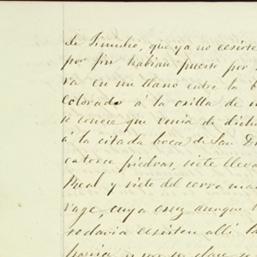 de Timulio, que ya no ecsiste
por fin habian puesto por
va en un llano entre la b
Colorado á la orilla de u
se conoce que
á la citada boca de San D
catorce piedras, siete lleva
Real y siete del cerro ma
vage, cuya cruz aunque
todavia ecsisten alli la